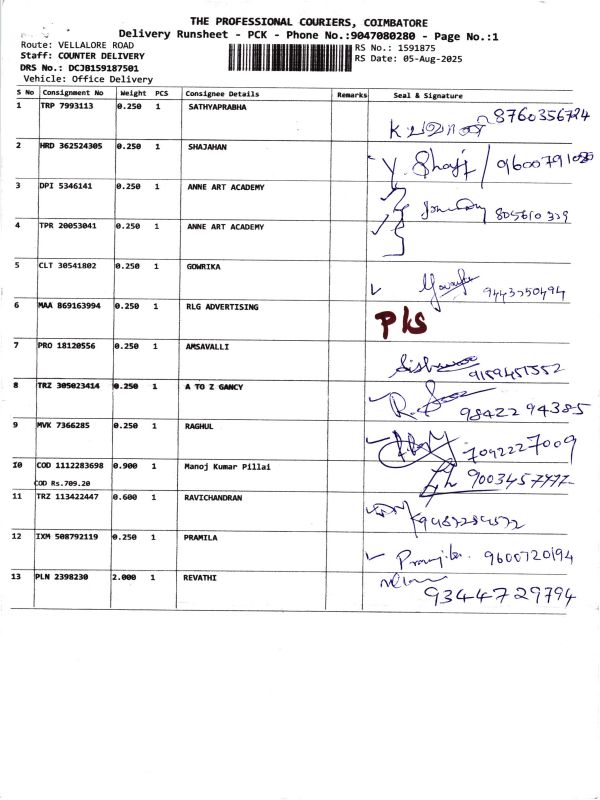 THE PROFESSIONAL COURIERS, COIMBATORE
Delivery Runsheet - PCK - Phone No.:9047080280 - Page No.:1
Route: VELLALORE ROAD
RS No.: 1591875
Staff: COUNTER DELIVERY
RS Date: 05-Aug-2025
DRS No.: DCJB159187501
Vehicle: Office Delivery
S No Consignment No Weight PCS Consignee Details Remarks Seal & Signature
1 TRP 7993113 0.250 1 SATHYAPRABHA 8760356724
2 HRD 362524305 0.250 1 SHAJAHAN Y. Shaji /
3 DPI 5346141 0.250 1 ANNE ART ACADEMY
4 TPR 20053041 0.250 1 ANNE ART ACADEMY
5 CLT 30541802 0.250 1 GOWRIKA 9443350494
6 MAA 869163994 0.250 1 RLG ADVERTISING PKS
7 PRO 18120556 0.250 1 AMSAVALLI
8 TRZ 305023414 0.250 1 A TO Z GANCY 9842294385
9 MVK 7366285 0.250 1 RAGHUL 7092227009
10 COD 1112283698 0.900 1 Manoj Kumar Pillai
COD Rs.709.20
11 TRZ 113422447 0.600 1 RAVICHANDRAN
12 IXM 508792119 0.250 1 PRAMILA Pramila. 9600720194
13 PLN 2398230 2.000 1 REVATHI 9344729794